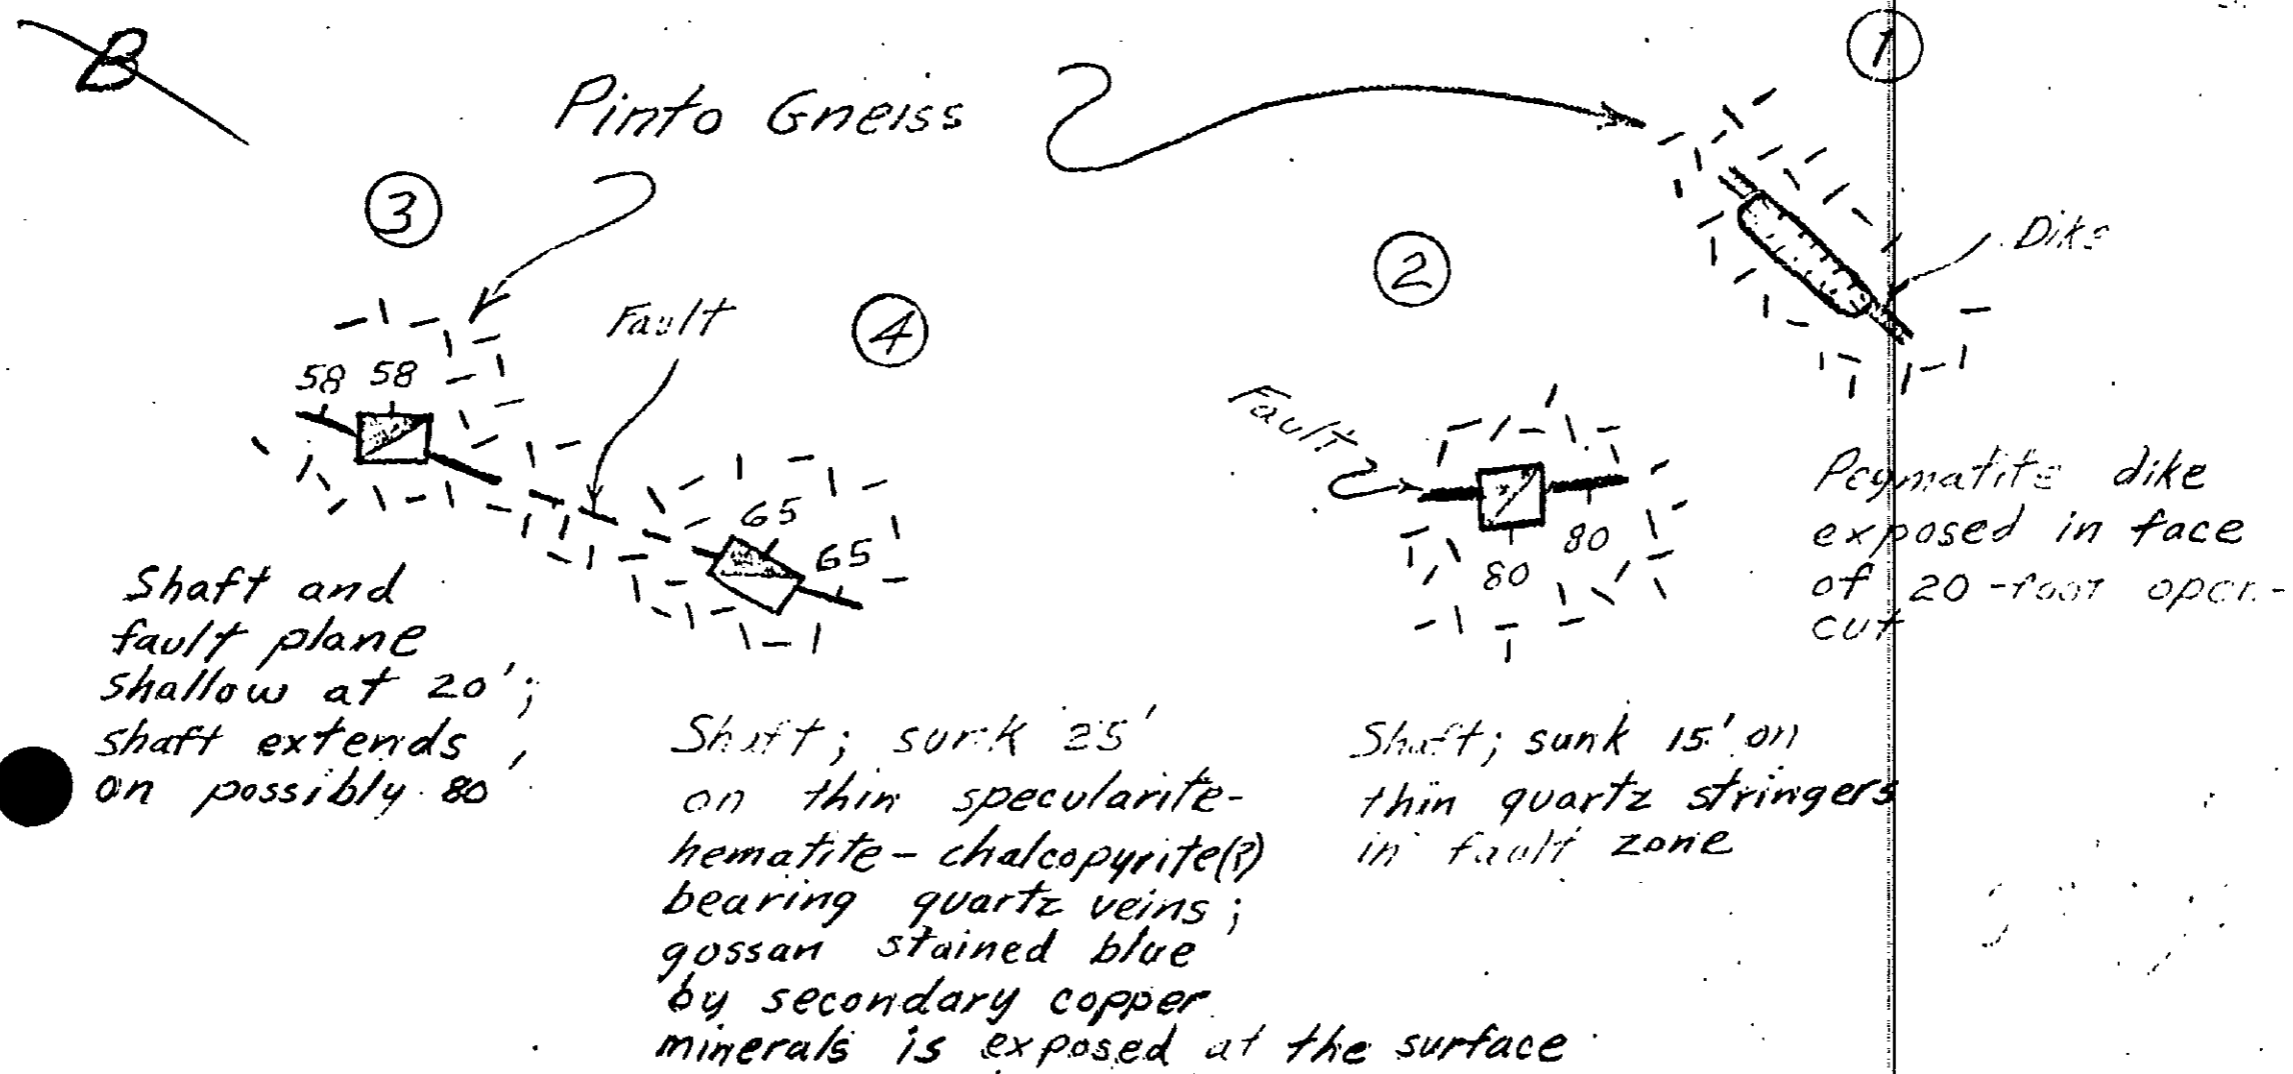 B
Pinto Gneiss
1
3
2
Dike
4
Fault
58 58
Fault
65
65
80
80
Pegmatite dike
exposed in face
of 20-foot open-
cut
Shaft and
fault plane
shallow at 20';
shaft extends
on possibly 80'
Shaft; sunk 25'
on thin specularite-
hematite-chalcopyrite(?)
bearing quartz veins;
gossan stained blue
by secondary copper
minerals is exposed at the surface
Shaft; sunk 15' on
thin quartz stringers
in fault zone